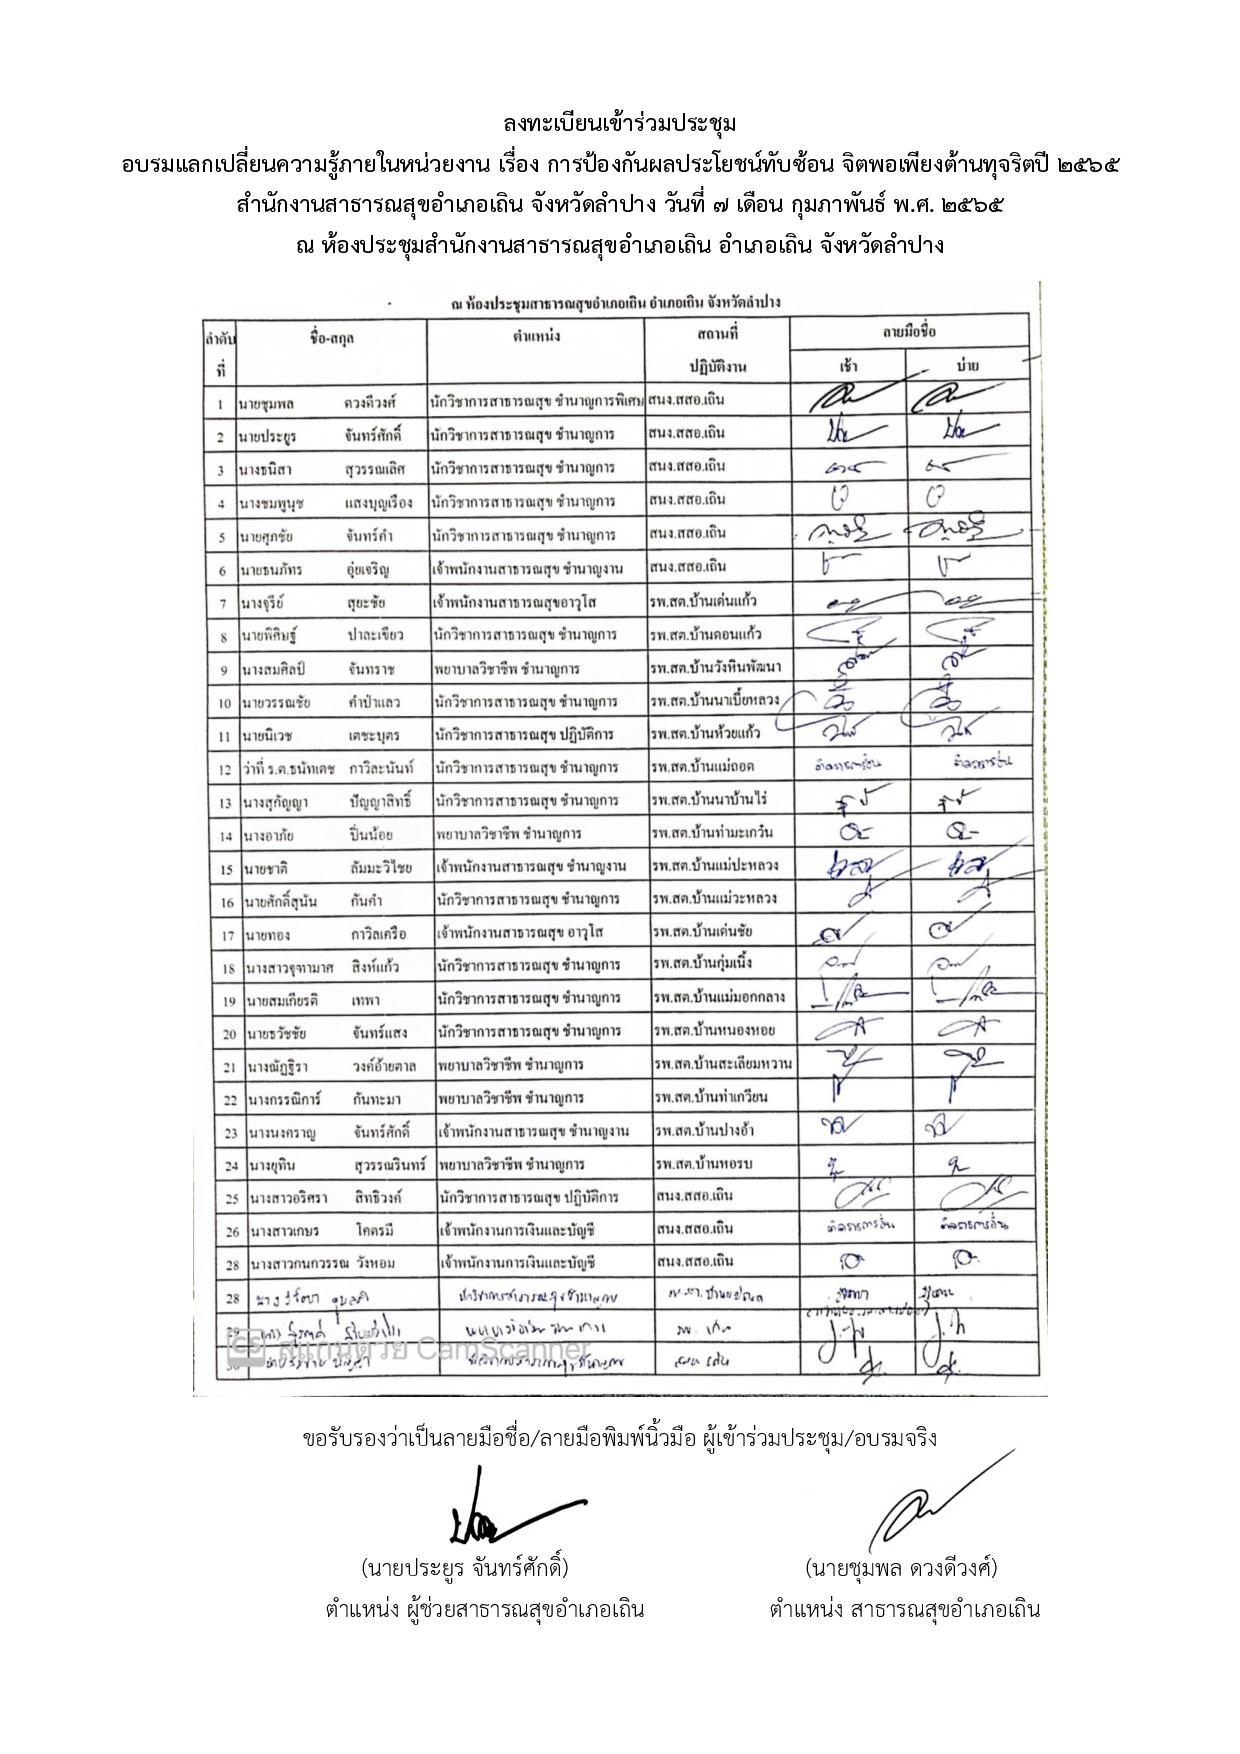 ลงทะเบียนเข้าร่วมประชุม
อบรมแลกเปลี่ยนความรู้ภายในหน่วยงาน เรื่อง การป้องกันผลประโยชน์ทับซ้อน จิตพอเพียงต้านทุจริตปี ๒๕๖๕
สำนักงานสาธารณสุขอำเภอเถิน จังหวัดลำปาง วันที่ ๗ เดือน กุมภาพันธ์ พ.ศ. ๒๕๖๕
ณ ห้องประชุมสำนักงานสาธารณสุขอำเภอเถิน อำเภอเถิน จังหวัดลำปาง
ณ ห้องประชุมสาธารณสุขอำเภอเถิน อำเภอเถิน จังหวัดลำปาง
ลำดับที่ ชื่อ-สกุล ตำแหน่ง สถานที่ปฏิบัติงาน ลายมือชื่อ
เช้า บ่าย
1 นายชุมพล ดวงดีวงศ์ นักวิชาการสาธารณสุข ชำนาญการพิเศษ สนง.สสอ.เถิน
2 นายประยูร จันทร์ศักดิ์ นักวิชาการสาธารณสุข ชำนาญการ สนง.สสอ.เถิน
3 นางธนิสา สุวรรณเลิศ นักวิชาการสาธารณสุข ชำนาญการ สนง.สสอ.เถิน
4 นางชมพูนุช แสงบุญเรือง นักวิชาการสาธารณสุข ชำนาญการ สนง.สสอ.เถิน
5 นายศุภชัย จันทร์คำ นักวิชาการสาธารณสุข ชำนาญการ สนง.สสอ.เถิน
6 นายธนภัทร อุ่ยเจริญ เจ้าพนักงานสาธารณสุข ชำนาญงาน สนง.สสอ.เถิน
7 นางจุรีย์ สุยะชัย เจ้าพนักงานสาธารณสุขอาวุโส รพ.สต.บ้านเด่นแก้ว
8 นายพิศิษฐ์ ปาละเขียว นักวิชาการสาธารณสุข ชำนาญการ รพ.สต.บ้านดอนแก้ว
9 นางสมศิลป์ จันทราช พยาบาลวิชาชีพ ชำนาญการ รพ.สต.บ้านวังหินพัฒนา
10 นายวรรณชัย คำป่าแลว นักวิชาการสาธารณสุข ชำนาญการ รพ.สต.บ้านนาเบี้ยหลวง
11 นายนิเวช เตชะบุตร นักวิชาการสาธารณสุข ปฏิบัติการ รพ.สต.บ้านห้วยแก้ว
12 ว่าที่ ร.ต.ธนัทเดช กาวิละนันท์ นักวิชาการสาธารณสุข ชำนาญการ รพ.สต.บ้านแม่ถอด ติดราชการอื่น ติดราชการอื่น
13 นางสุกัญญา ปัญญาสิทธิ์ นักวิชาการสาธารณสุข ชำนาญการ รพ.สต.บ้านนาบ้านไร่
14 นางอาภัย ปิ่นน้อย พยาบาลวิชาชีพ ชำนาญการ รพ.สต.บ้านท่ามะเกว๋น
15 นายชาติ ลัมมะวิไชย เจ้าพนักงานสาธารณสุข ชำนาญงาน รพ.สต.บ้านแม่ปะหลวง
16 นายศักดิ์สุนัน กันคำ นักวิชาการสาธารณสุข ชำนาญการ รพ.สต.บ้านแม่วะหลวง
17 นายทอง กาวิลเครือ เจ้าพนักงานสาธารณสุข อาวุโส รพ.สต.บ้านเด่นชัย
18 นางสาวจุฑามาศ สิงห์แก้ว นักวิชาการสาธารณสุข ชำนาญการ รพ.สต.บ้านกุ่มเนิ้ง
19 นายสมเกียรติ เทพา นักวิชาการสาธารณสุข ชำนาญการ รพ.สต.บ้านแม่มอกกลาง
20 นายธวัชชัย จันทร์แสง นักวิชาการสาธารณสุข ชำนาญการ รพ.สต.บ้านหนองหอย
21 นางณัฏฐิรา วงค์อ้ายตาล พยาบาลวิชาชีพ ชำนาญการ รพ.สต.บ้านสะเลียมหวาน
22 นางกรรณิการ์ กันทะมา พยาบาลวิชาชีพ ชำนาญการ รพ.สต.บ้านท่าเกวียน
23 นางนงคราญ จันทร์ศักดิ์ เจ้าพนักงานสาธารณสุข ชำนาญงาน รพ.สต.บ้านปางอ้า
24 นางยุทิน สุวรรณรินทร์ พยาบาลวิชาชีพ ชำนาญการ รพ.สต.บ้านหอรบ
25 นางสาวอริศรา สิทธิวงค์ นักวิชาการสาธารณสุข ปฏิบัติการ สนง.สสอ.เถิน
26 นางสาวเกษร โคตรมี เจ้าพนักงานการเงินและบัญชี สนง.สสอ.เถิน ติดราชการอื่น ติดราชการอื่น
28 นางสาวกนกวรรณ วังหอม เจ้าพนักงานการเงินและบัญชี สนง.สสอ.เถิน
28 นาง นักวิชาการสาธารณสุขชำนาญการ
29
CS สแกนด้วย CamScanner
ขอรับรองว่าเป็นลายมือชื่อ/ลายมือพิมพ์นิ้วมือ ผู้เข้าร่วมประชุม/อบรมจริง
(นายประยูร จันทร์ศักดิ์) (นายชุมพล ดวงดีวงศ์)
ตำแหน่ง ผู้ช่วยสาธารณสุขอำเภอเถิน ตำแหน่ง สาธารณสุขอำเภอเถิน